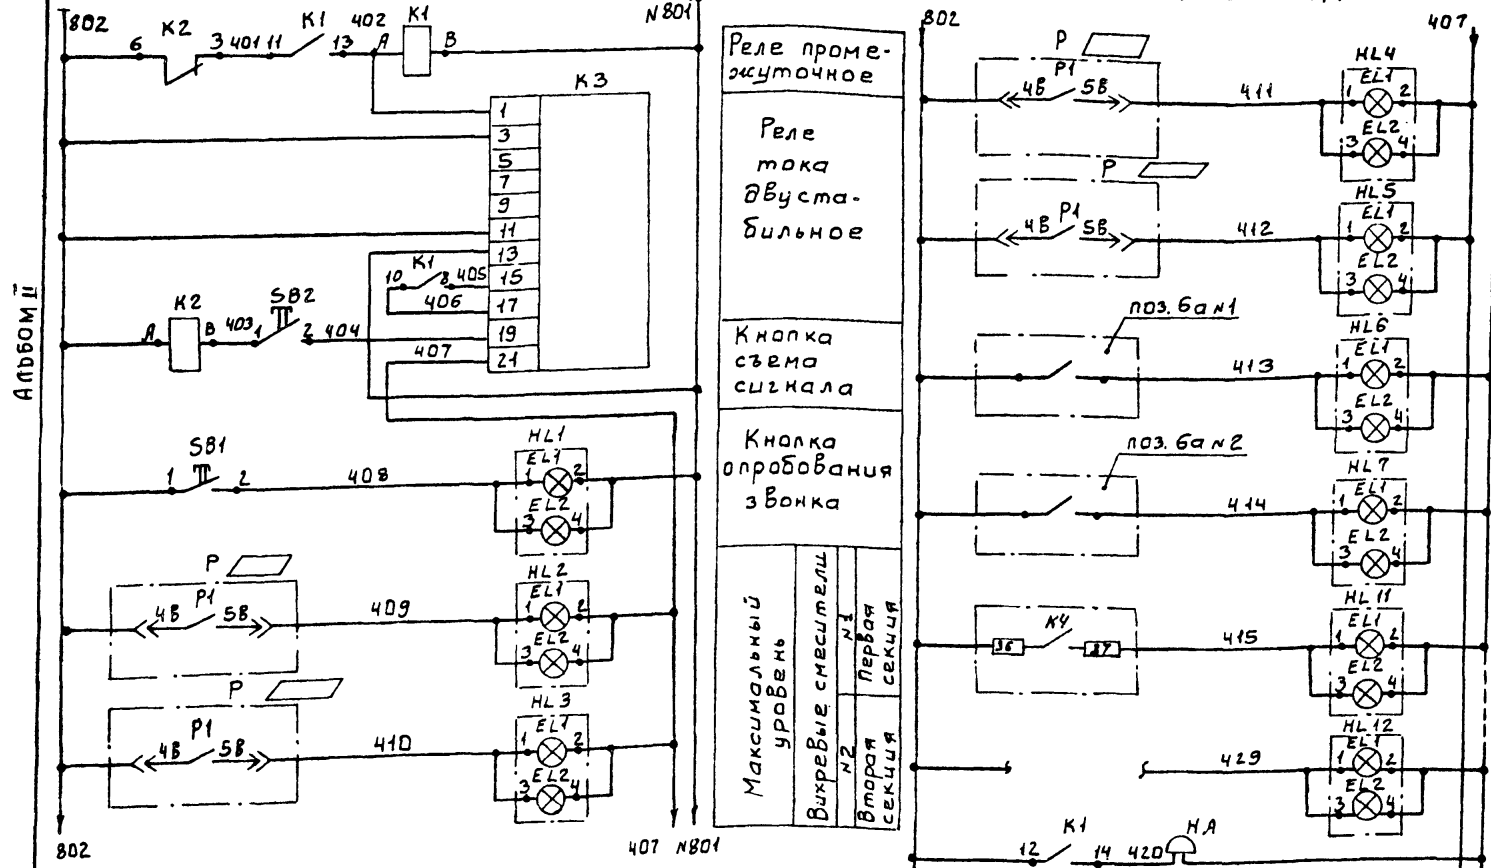 802
К2
К1
402
К1
N801
6
3
401
11
13
А
В
К3
1
3
5
7
9
11
13
15
17
19
21
10
К1
8
405
406
К2
SB2
А
В
403
1
2
404
407
Альбом II
SB1
1
2
408
HL1
EL1
1
2
EL2
3
4
Р
4В
Р1
5В
409
HL2
EL1
1
2
EL2
3
4
Р
4В
Р1
5В
410
HL3
EL1
1
2
EL2
3
4
802
407
N801
Реле проме-
жуточное
Реле
тока
двуста-
бильное
Кнопка
съема
сигнала
Кнопка
опробования
звонка
Максимальный
уровень
Вихревые смесители
N1
Первая
секция
N2
Вторая
секция
802
407
Р
4В
Р1
5В
411
HL4
EL1
1
2
EL2
3
4
Р
4В
Р1
5В
412
HL5
EL1
1
2
EL2
3
4
поз. 6а N1
413
HL6
EL1
1
2
EL2
3
4
поз. 6а N2
414
HL7
EL1
1
2
EL2
3
4
36
К4
37
415
HL11
EL1
1
2
EL2
3
4
429
HL12
EL1
1
2
EL2
3
4
12
К1
14
420
НА